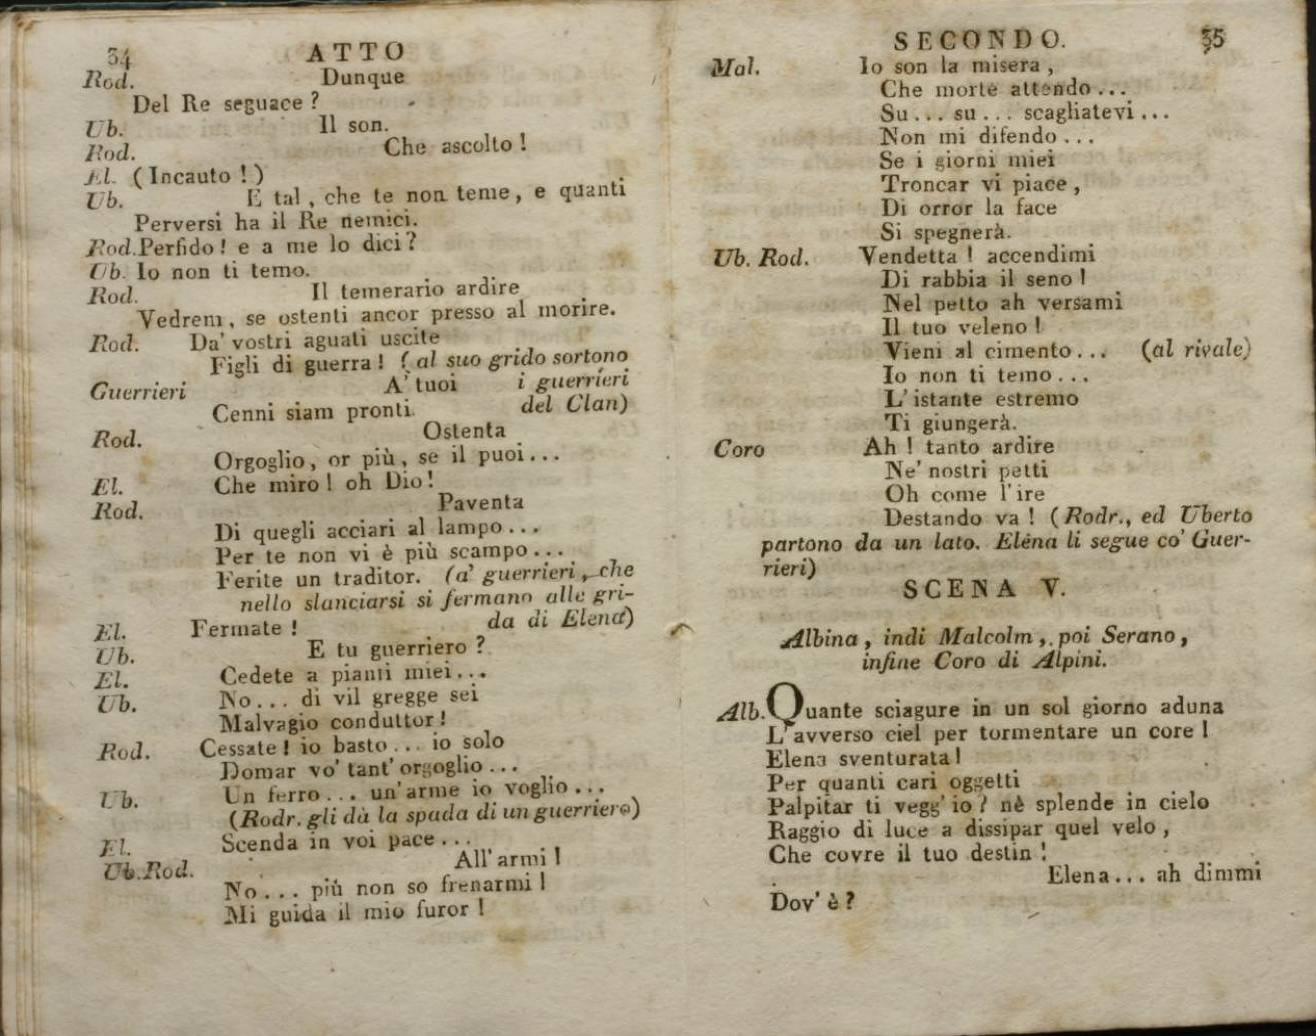 34 ATTO
Rod. Dunque
Del Re seguace ?
Ub. Il son.
Rod. Che ascolto !
El. (Incauto !)
Ub. E tal, che te non teme, e quanti
Perversi ha il Re nemici.
Rod. Perfido ! e a me lo dici ?
Ub. Io non ti temo.
Rod. Il temerario ardire
Vedrem, se ostenti ancor presso al morire.
Rod. Da' vostri aguati uscite
Figli di guerra ! (al suo grido sortono
Guerrieri A' tuoi i guerrieri
Cenni siam pronti. del Clan)
Rod. Ostenta
Orgoglio, or più, se il puoi...
El. Che miro ! oh Dio !
Rod. Paventa
Di quegli acciari al lampo...
Per te non vi è più scampo...
Ferite un traditor. (a' guerrieri, che
nello slanciarsi si fermano alle gri-
El. Fermate ! da di Elena)
Ub. E tu guerriero ?
El. Cedete a pianti miei...
Ub. No... di vil gregge sei
Malvagio conduttor !
Rod. Cessate ! io basto... io solo
Domar vo' tant' orgoglio...
Ub. Un ferro... un' arme io voglio...
(Rodr. gli dà la spada di un guerriero)
El. Scenda in voi pace...
Ub. Rod. All' armi !
No... più non so frenarmi !
Mi guida il mio furor !
SECONDO. 35
Mal. Io son la misera,
Che morte attendo...
Su... su... scagliatevi...
Non mi difendo...
Se i giorni miei
Troncar vi piace,
Di orror la face
Si spegnerà.
Ub. Rod. Vendetta ! accendimi
Di rabbia il seno !
Nel petto ah versami
Il tuo veleno !
Vieni al cimento... (al rivale)
Io non ti temo...
L' istante estremo
Ti giungerà.
Coro Ah ! tanto ardire
Ne' nostri petti
Oh come l' ire
Destando va ! (Rodr., ed Uberto
partono da un lato. Elena li segue co' Guer-
rieri)
SCENA V.
Albina, indi Malcolm, poi Serano,
infine Coro di Alpini.
Alb. Quante sciagure in un sol giorno aduna
L' avverso ciel per tormentare un core !
Elena sventurata !
Per quanti cari oggetti
Palpitar ti vegg' io ? nè splende in cielo
Raggio di luce a dissipar quel velo,
Che covre il tuo destin !
Elena... ah dimmi
Dov' è ?